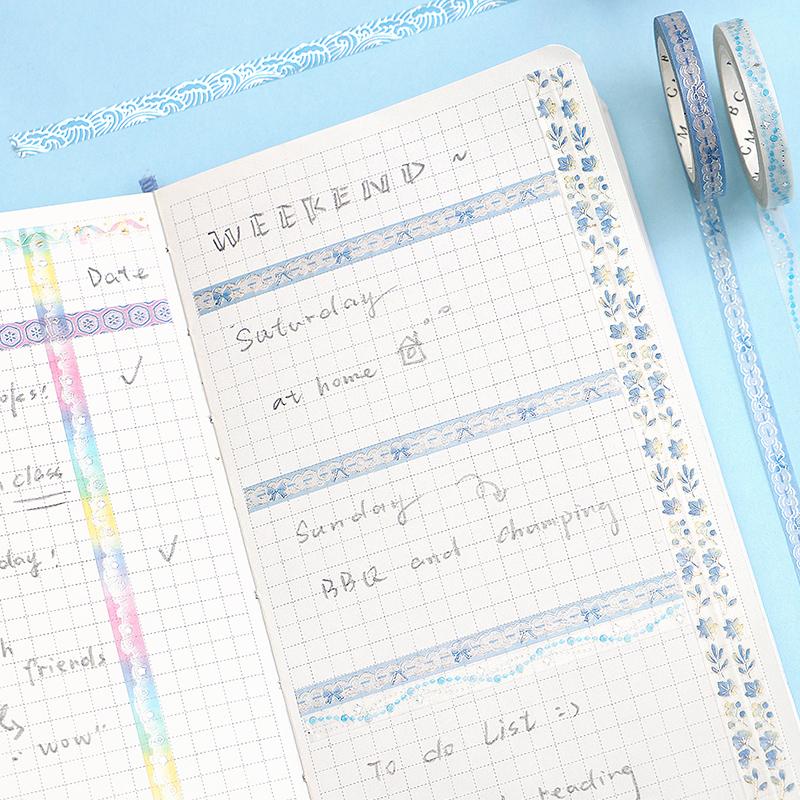 Date
class
day!
friends
wow"
WEEKEND ~
Saturday
at home
Sunday
BBQ and champing
To do List =)
reading